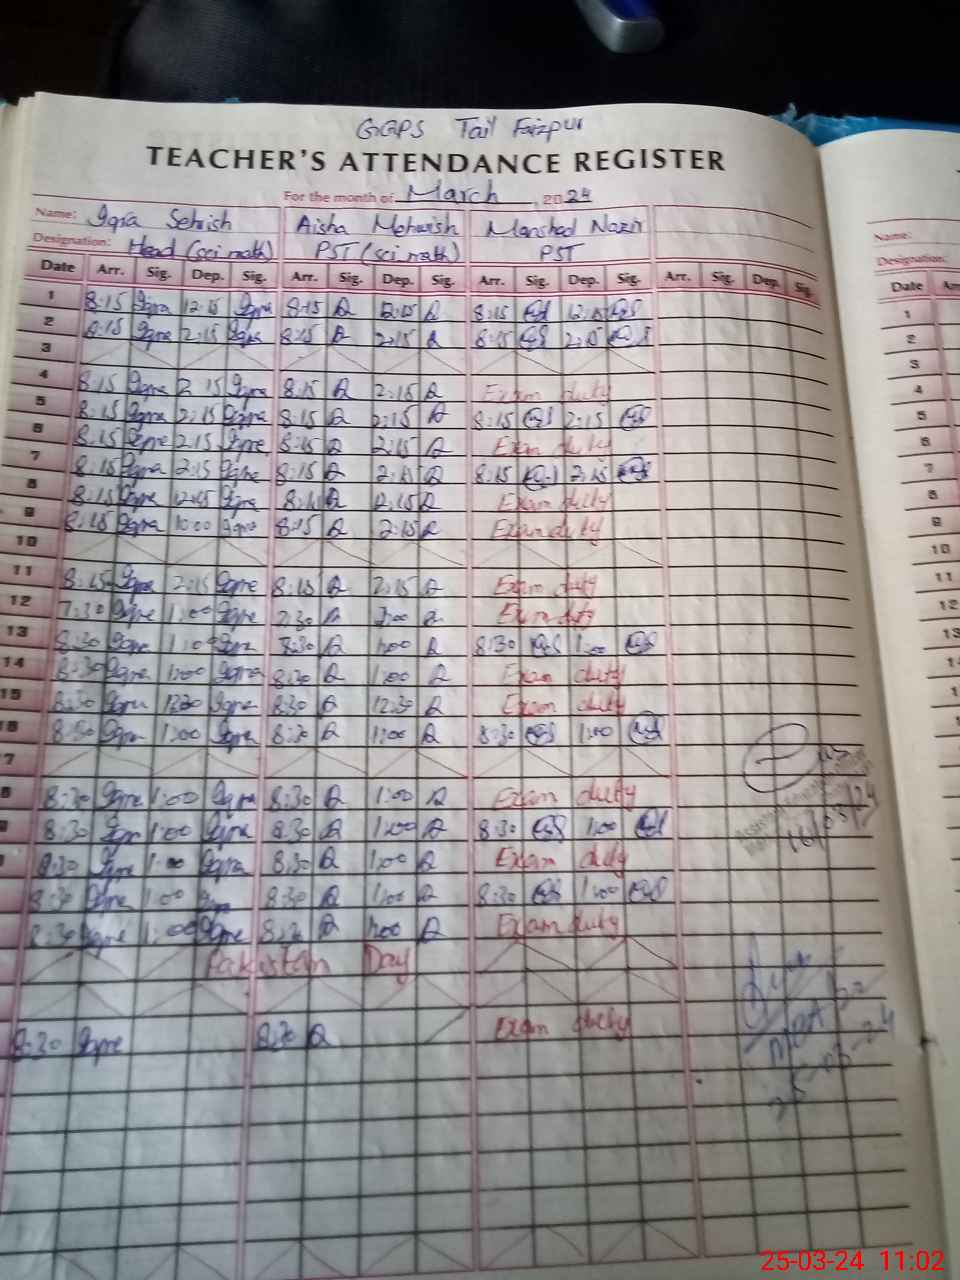 GGPS Tail Faizpur
TEACHER'S ATTENDANCE REGISTER
For the month of March, 2024
Name: Iqra Sehrish Aisha Mehwish Manshad Nazir
Designation: Head (sci math) PST (sci math) PST
Date Arr. Sig. Dep. Sig. Arr. Sig. Dep. Sig. Arr. Sig. Dep. Sig. Arr. Sig. Dep. Sig.
1 8:15 Iqra 12:15 Iqra 8:15 A 12:15 A 8:15 12:15
2 8:15 Iqra 2:15 Iqra 8:15 A 2:15 A 8:15 2:15
3
4 8:15 Iqra 2:15 Iqra 8:15 A 2:15 A Exam duty
5 8:15 Iqra 2:15 Iqra 8:15 A 2:15 A 8:15 2:15
6 8:15 Iqra 2:15 Iqra 8:15 A 2:15 A Exam duty
7 8:15 Iqra 2:15 Iqra 8:15 A 2:15 A 8:15 2:15
8 8:15 Iqra 12:15 Iqra 8:15 A 12:15 A Exam duty
9 8:15 Iqra 10:00 Iqra 8:15 A 2:15 A Exam duty
10
11 8:15 Iqra 2:15 Iqra 8:15 A 2:15 A Exam duty
12 7:30 Iqra 1:00 Iqra 7:30 A A Exam duty
13 8:30 Iqra 1:00 Iqra 8:30 A 1:00 A 8:30 1:00
14 8:30 Iqra 1:00 Iqra 8:30 A 1:00 A Exam duty
15 8:30 Iqra 12:30 Iqra 8:30 A 12:30 A Exam duty
16 8:30 Iqra 1:00 Iqra 8:30 A 1:00 A 8:30 1:00
7
8:30 Iqra 1:00 Iqra 8:30 A 1:00 A Exam duty
8:30 Iqra 1:00 Iqra 8:30 A 1:00 A 8:30 1:00
8:30 Iqra 1:00 Iqra 8:30 A 1:00 A Exam duty
8:30 Iqra 1:00 8:30 A 1:00 A 8:30 1:00
8:30 Iqra 1:00 Iqra 8:30 A 1:00 A Exam duty
Pakistan Day
8:30 Iqra 8:30 A Exam duty
16/03/24
25-03-24
Name:
Designation:
Date Arr
1
2
3
4
5
6
7
8
9
10
11
12
13
1
15
1
25-03-24 11:02